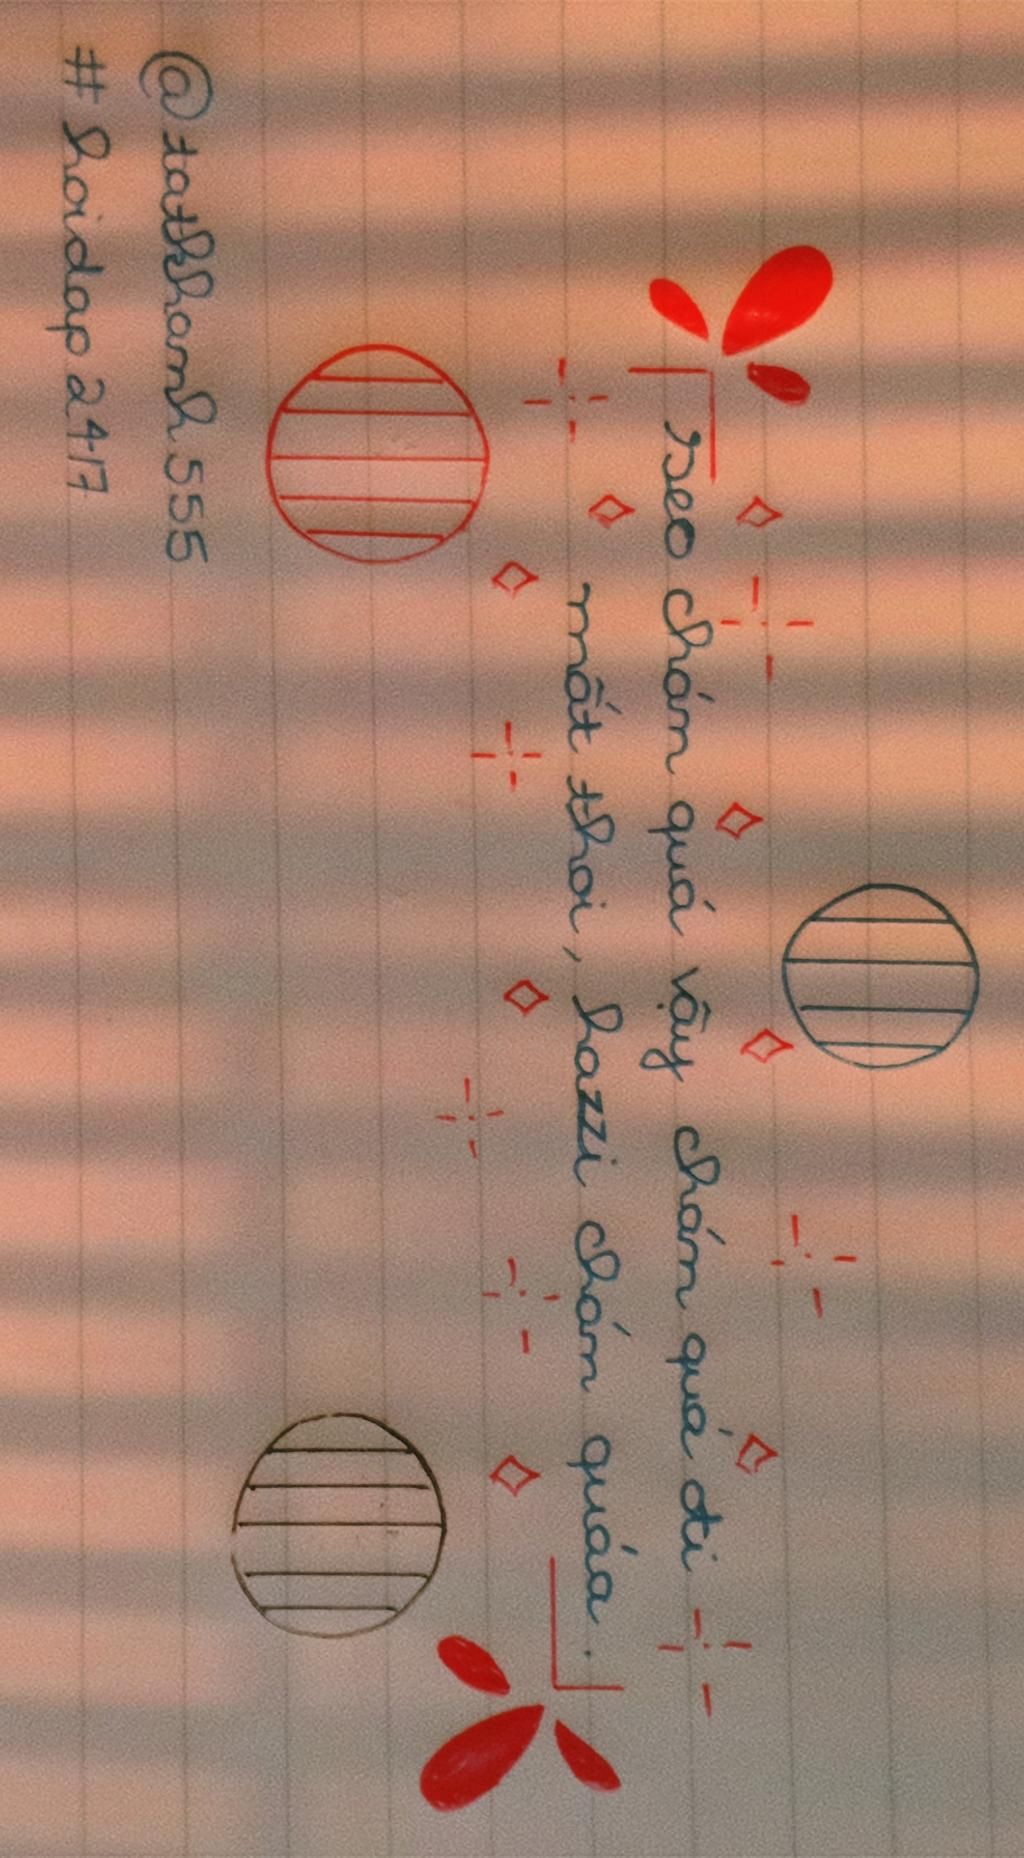 seo chán quá vậy chán quá đi
mất thoi, hazzi chán quáa.
@tathhanh555
# hoidap2417